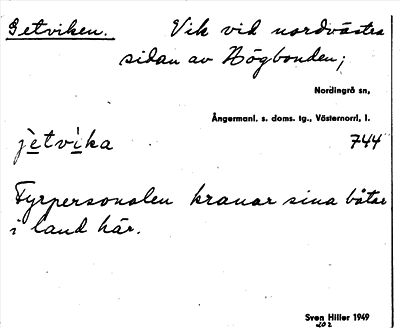 Getviken. Vik vid nordvästra
sidan av Högbonden;
Nordingrå sn,
Ångermanl. s. doms. tg., Västernorrl. l.
jètvìka 744
Fyrpersonalen kranar sina båtar
i land här.
Sven Hiller 1949
202